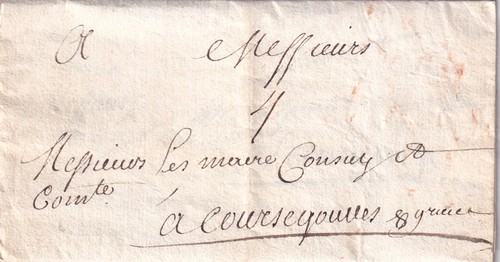 A Messieurs
4
Messieurs Les maire Consuls et
Comte
à Coursegoulles